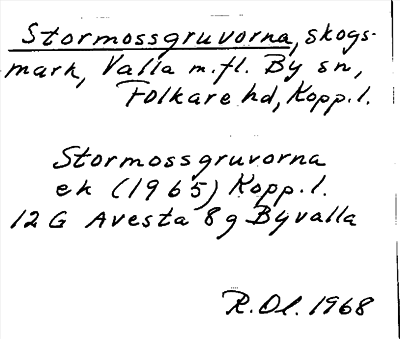 Stormossgruvorna, skogs-
mark, Valla m.fl. By sn,
Folkare hd, Kopp.l.
Stormossgruvorna
ek (1965) Kopp.l.
12 G Avesta 8 g Byvalla
R.Ol. 1968